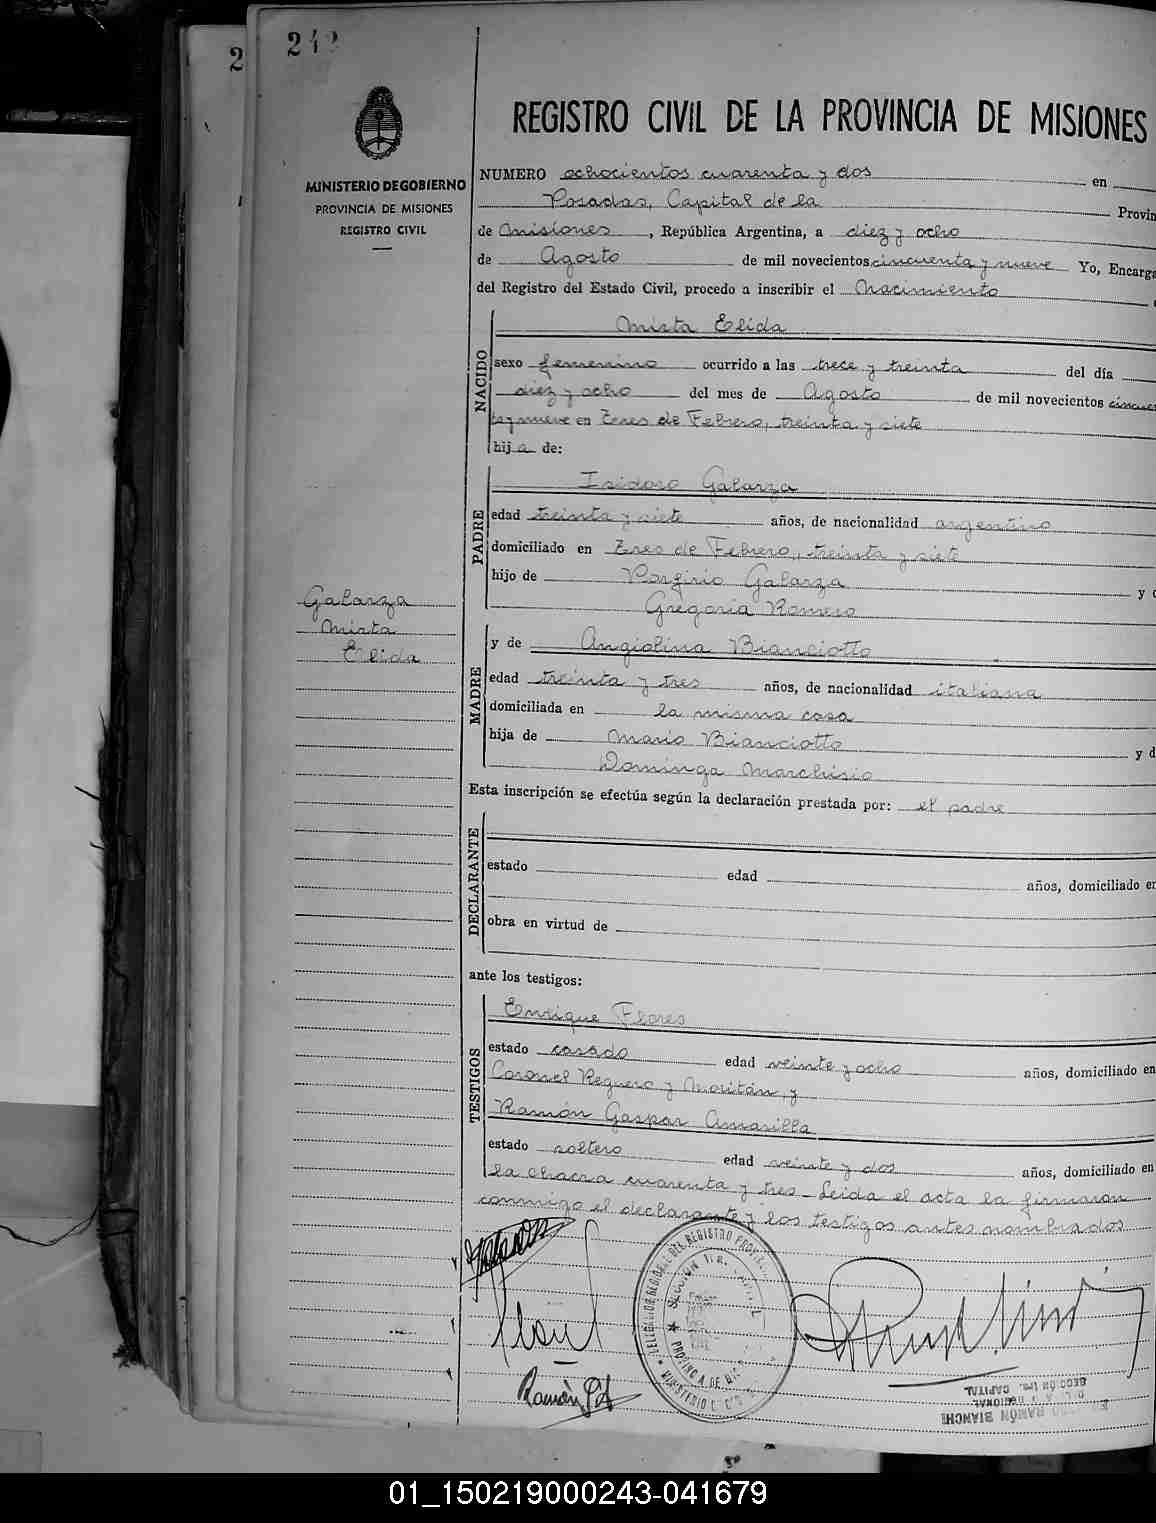 242
2
REGISTRO CIVIL DE LA PROVINCIA DE MISIONES
MINISTERIO DE GOBIERNO
PROVINCIA DE MISIONES
REGISTRO CIVIL
NUMERO ochocientos cuarenta y dos en
Posadas, Capital de la Provin
de Misiones, República Argentina, a diez y ocho
de Agosto de mil novecientos cincuenta y nueve Yo, Encarga
del Registro del Estado Civil, procedo a inscribir el Nacimiento
NACIDO
Mirta Elida
sexo femenino ocurrido a las trece y treinta del día
diez y ocho del mes de Agosto de mil novecientos cincuen
ta y nueve en Tres de Febrero, treinta y siete
hija de:
PADRE
Isidoro Galarza
edad treinta y siete años, de nacionalidad argentino
domiciliado en Tres de Febrero, treinta y siete
hijo de Porfirio Galarza y d
Gregoria Romero
Galarza
Mirta
Elida
MADRE
y de Angiolina Bianciotto
edad treinta y tres años, de nacionalidad italiana
domiciliada en la misma casa
hija de Mario Bianciotto y d
Dominga Marchisio
Esta inscripción se efectúa según la declaración prestada por: el padre
DECLARANTE
estado edad años, domiciliado en
obra en virtud de
ante los testigos:
TESTIGOS
Enrique Flores
estado casado edad veinte y ocho años, domiciliado en
Coronel Reguera y Moritán, y
Ramón Gaspar Amarilla
estado soltero edad veinte y dos años, domiciliado en
la chacra cuarenta y tres - Leida el acta la firmaron
conmigo el declarante y los testigos antes nombrados
Ramón
RAMÓN BIANCHI
SECCIÓN 1ra. CAPITAL
01_150219000243-041679